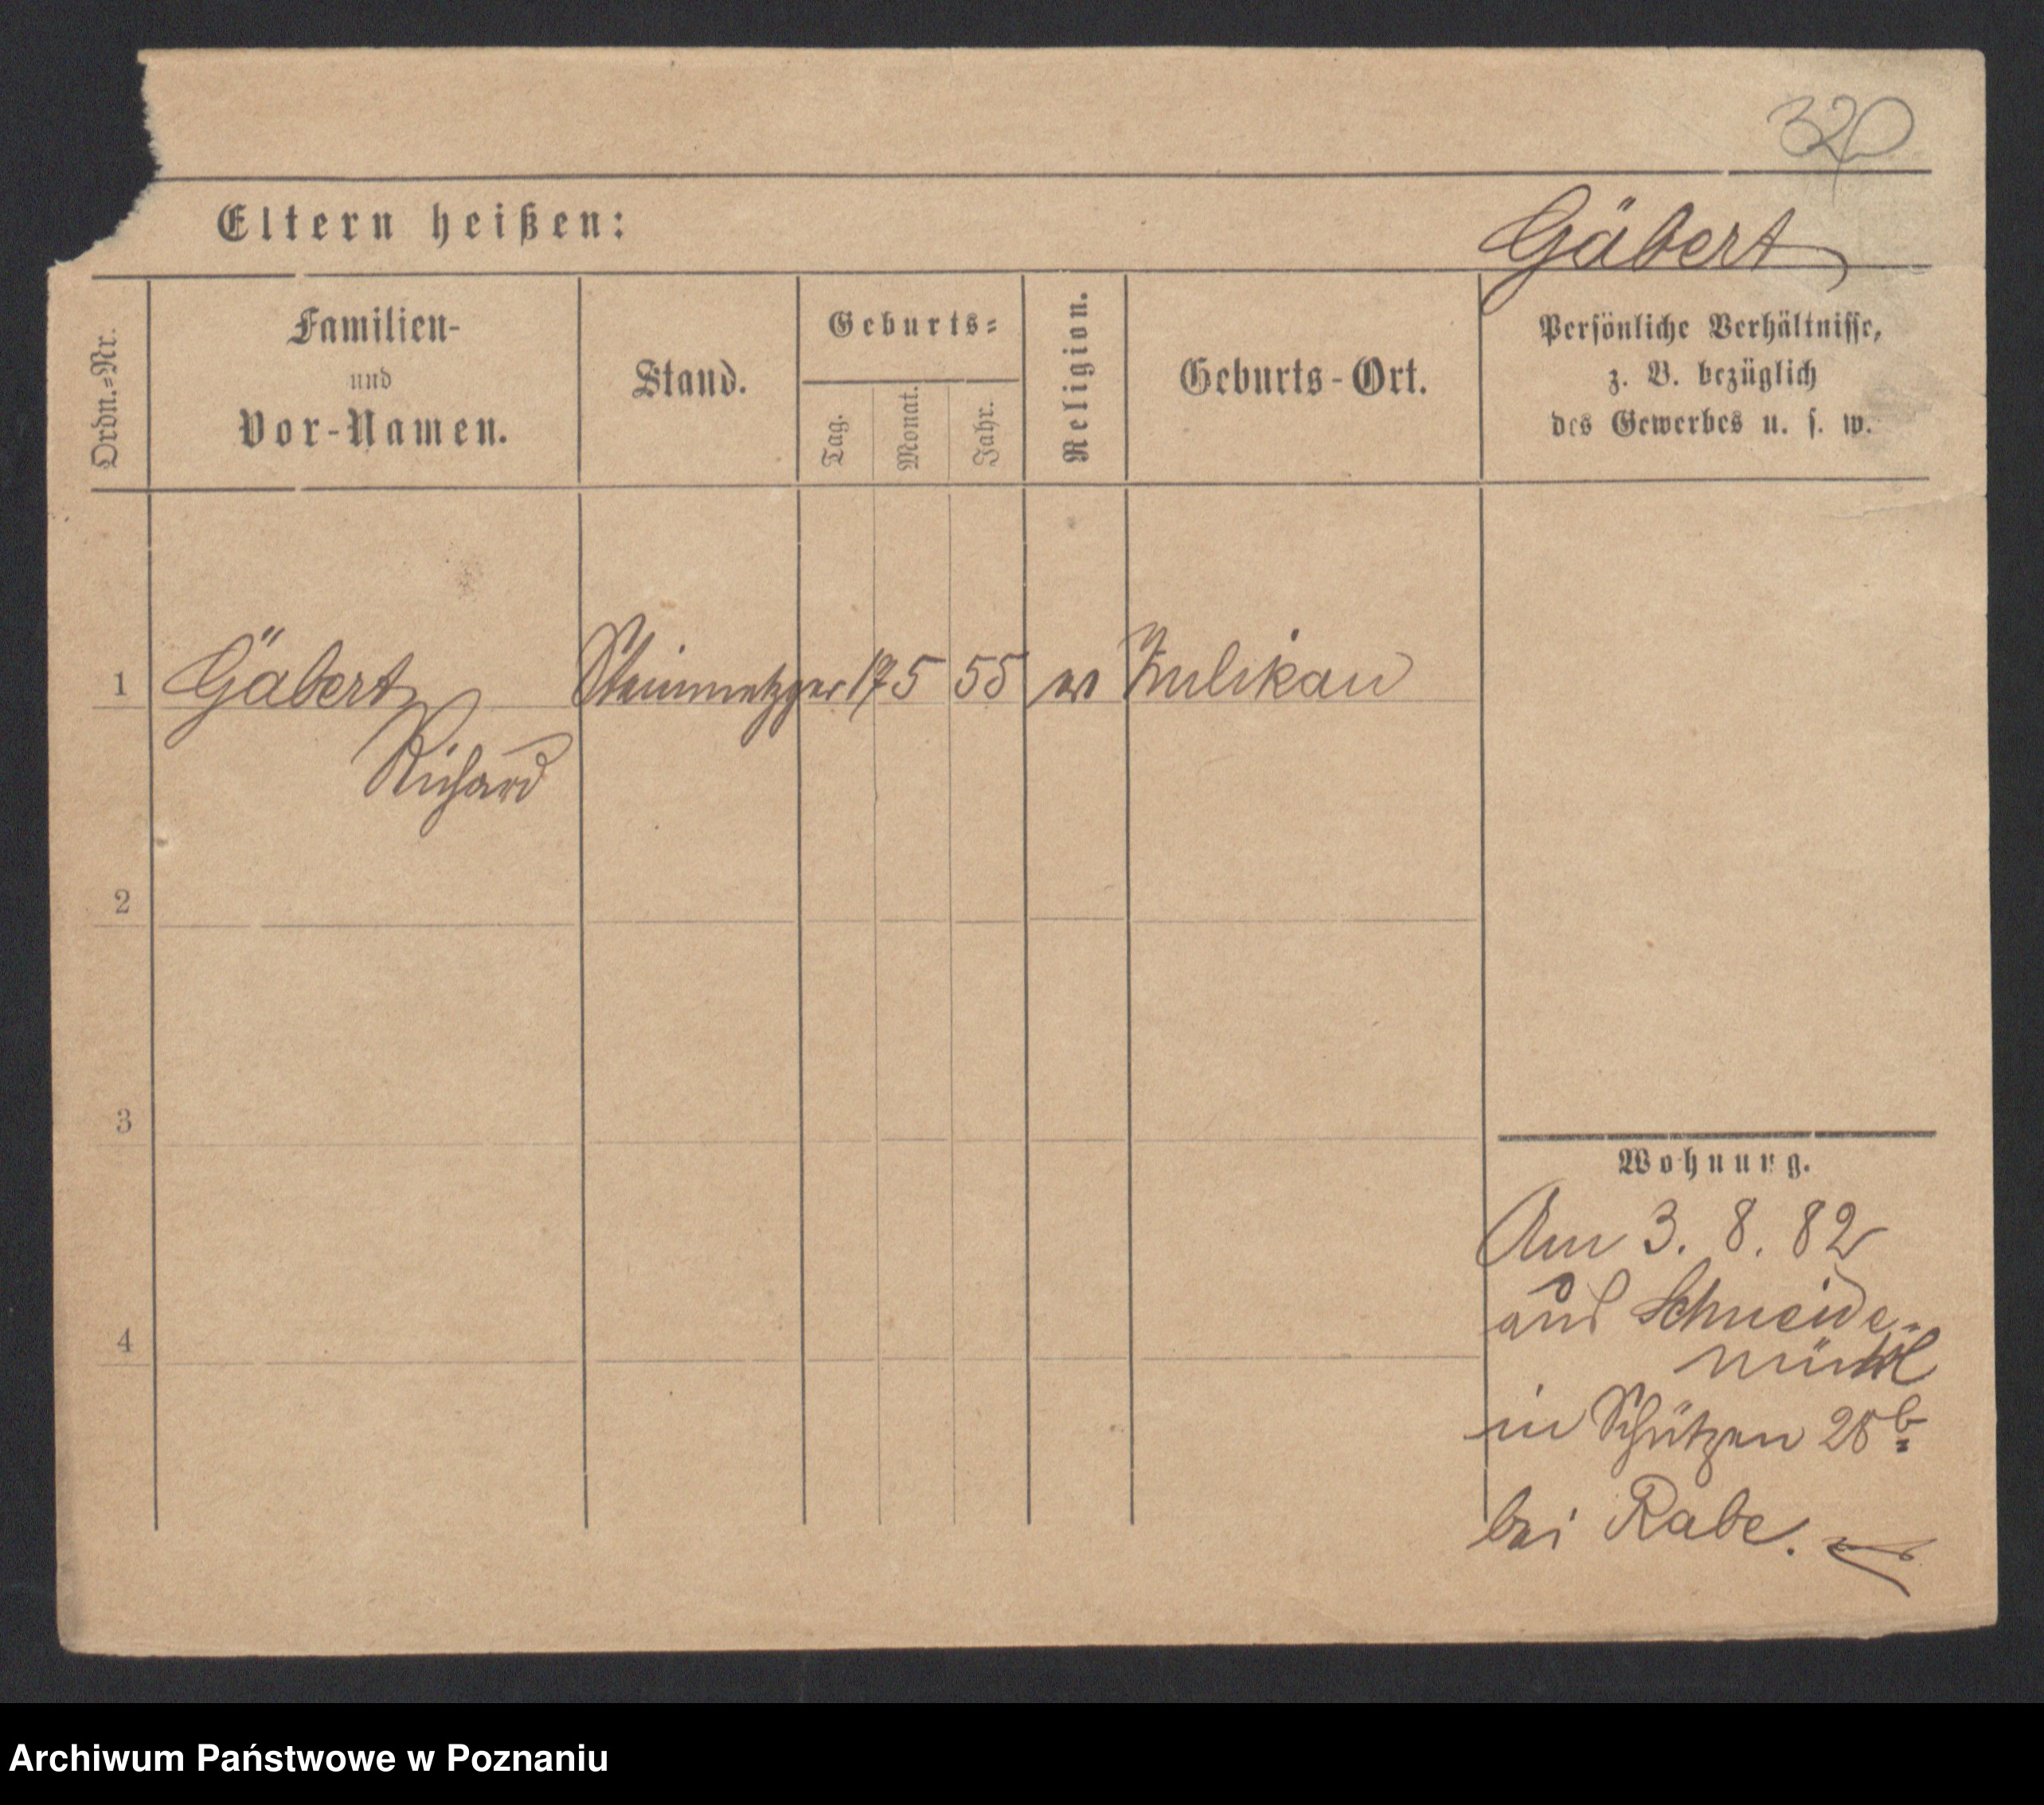 320
Eltern heißen:
Gäbert
Ordn.=Nr.
Familien-
und
Vor-Namen.
Stand.
Geburts=
Tag.
Monat.
Jahr.
Religion.
Geburts-Ort.
Persönliche Verhältnisse,
z. B. bezüglich
des Gewerbes u. s. w.
1 Gäbert Steinmetzger 17 5 55
Richard
2
3
4
Wohnung.
Am 3. 8. 82
aus Schneide-
mühl
in Schützen 28b
bei Rabe.
Archiwum Państwowe w Poznaniu